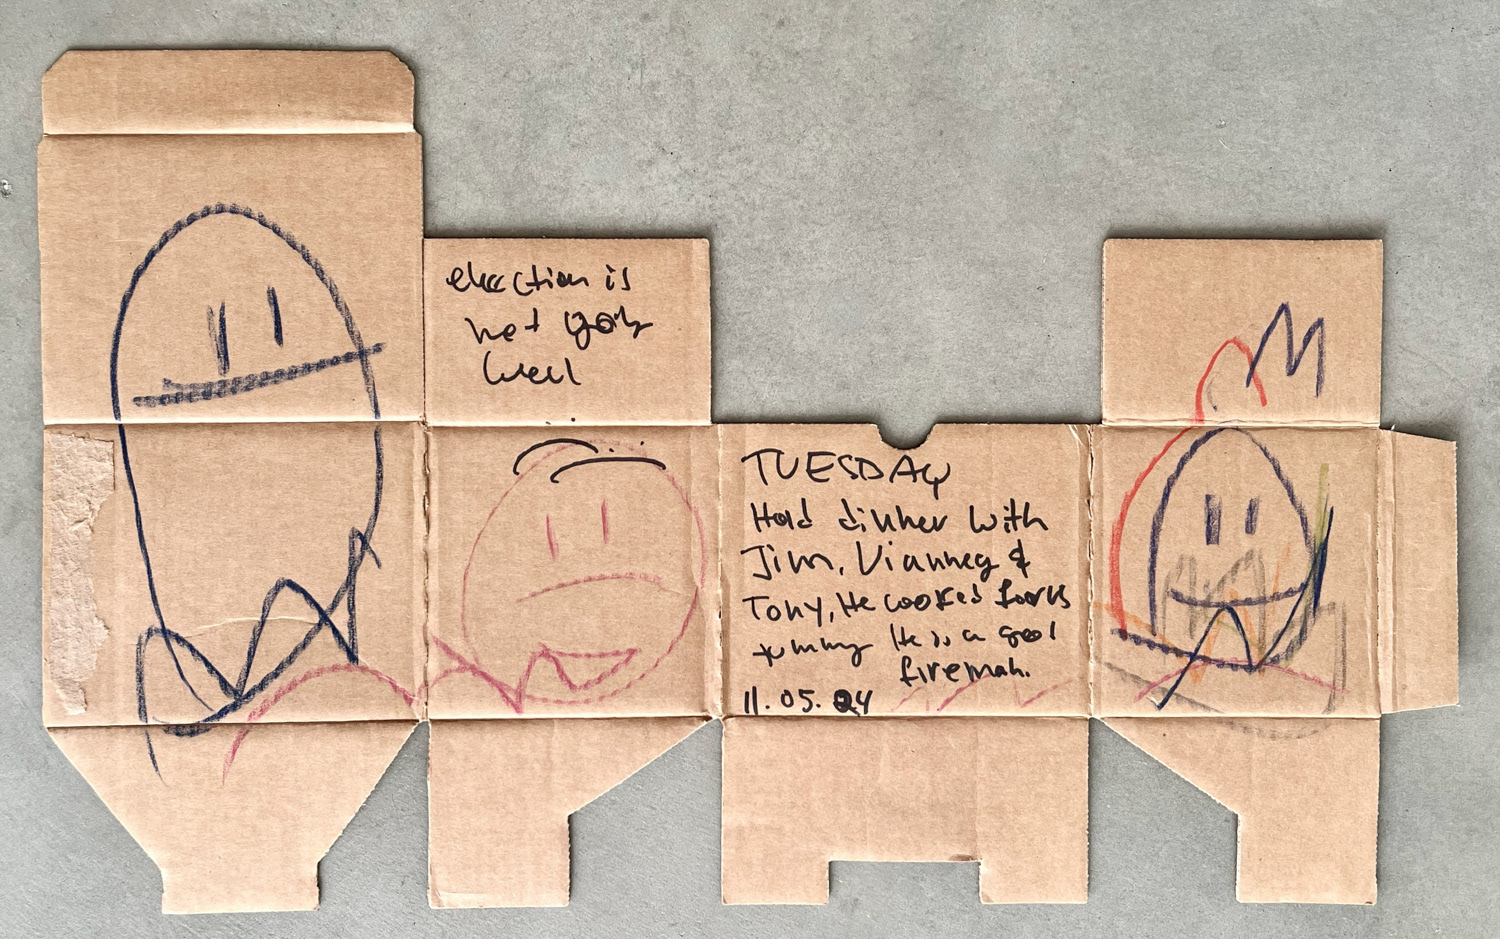 election is
not going
well
TUESDAY
Had dinner with
Jim, Vianney &
Tony, He cooked
yummy He is a good
fireman.
11.05.24